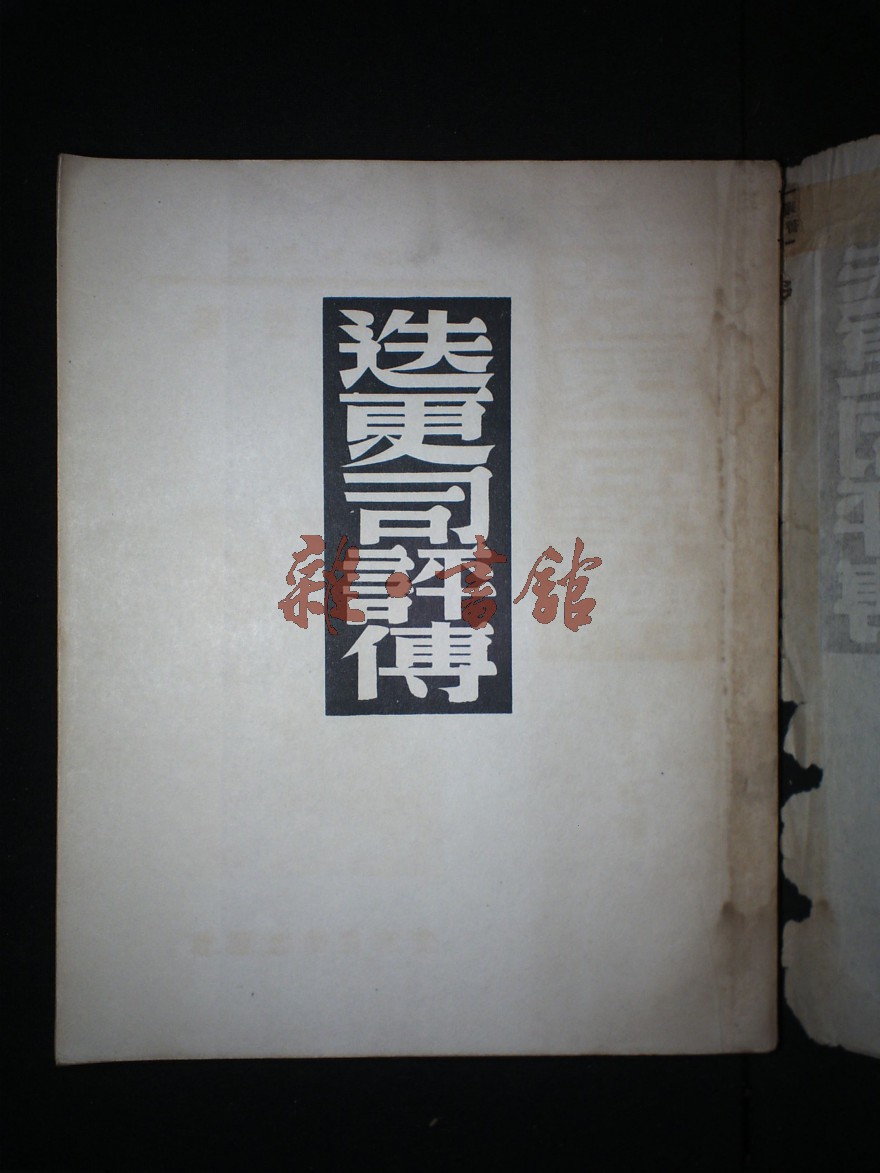 迭更司評傳
雜·書館